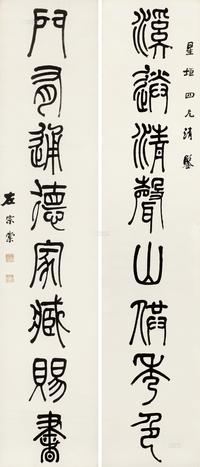 星垣四兄清鑒
溪清聲山秀色
門有通德家藏賜書
左宗棠